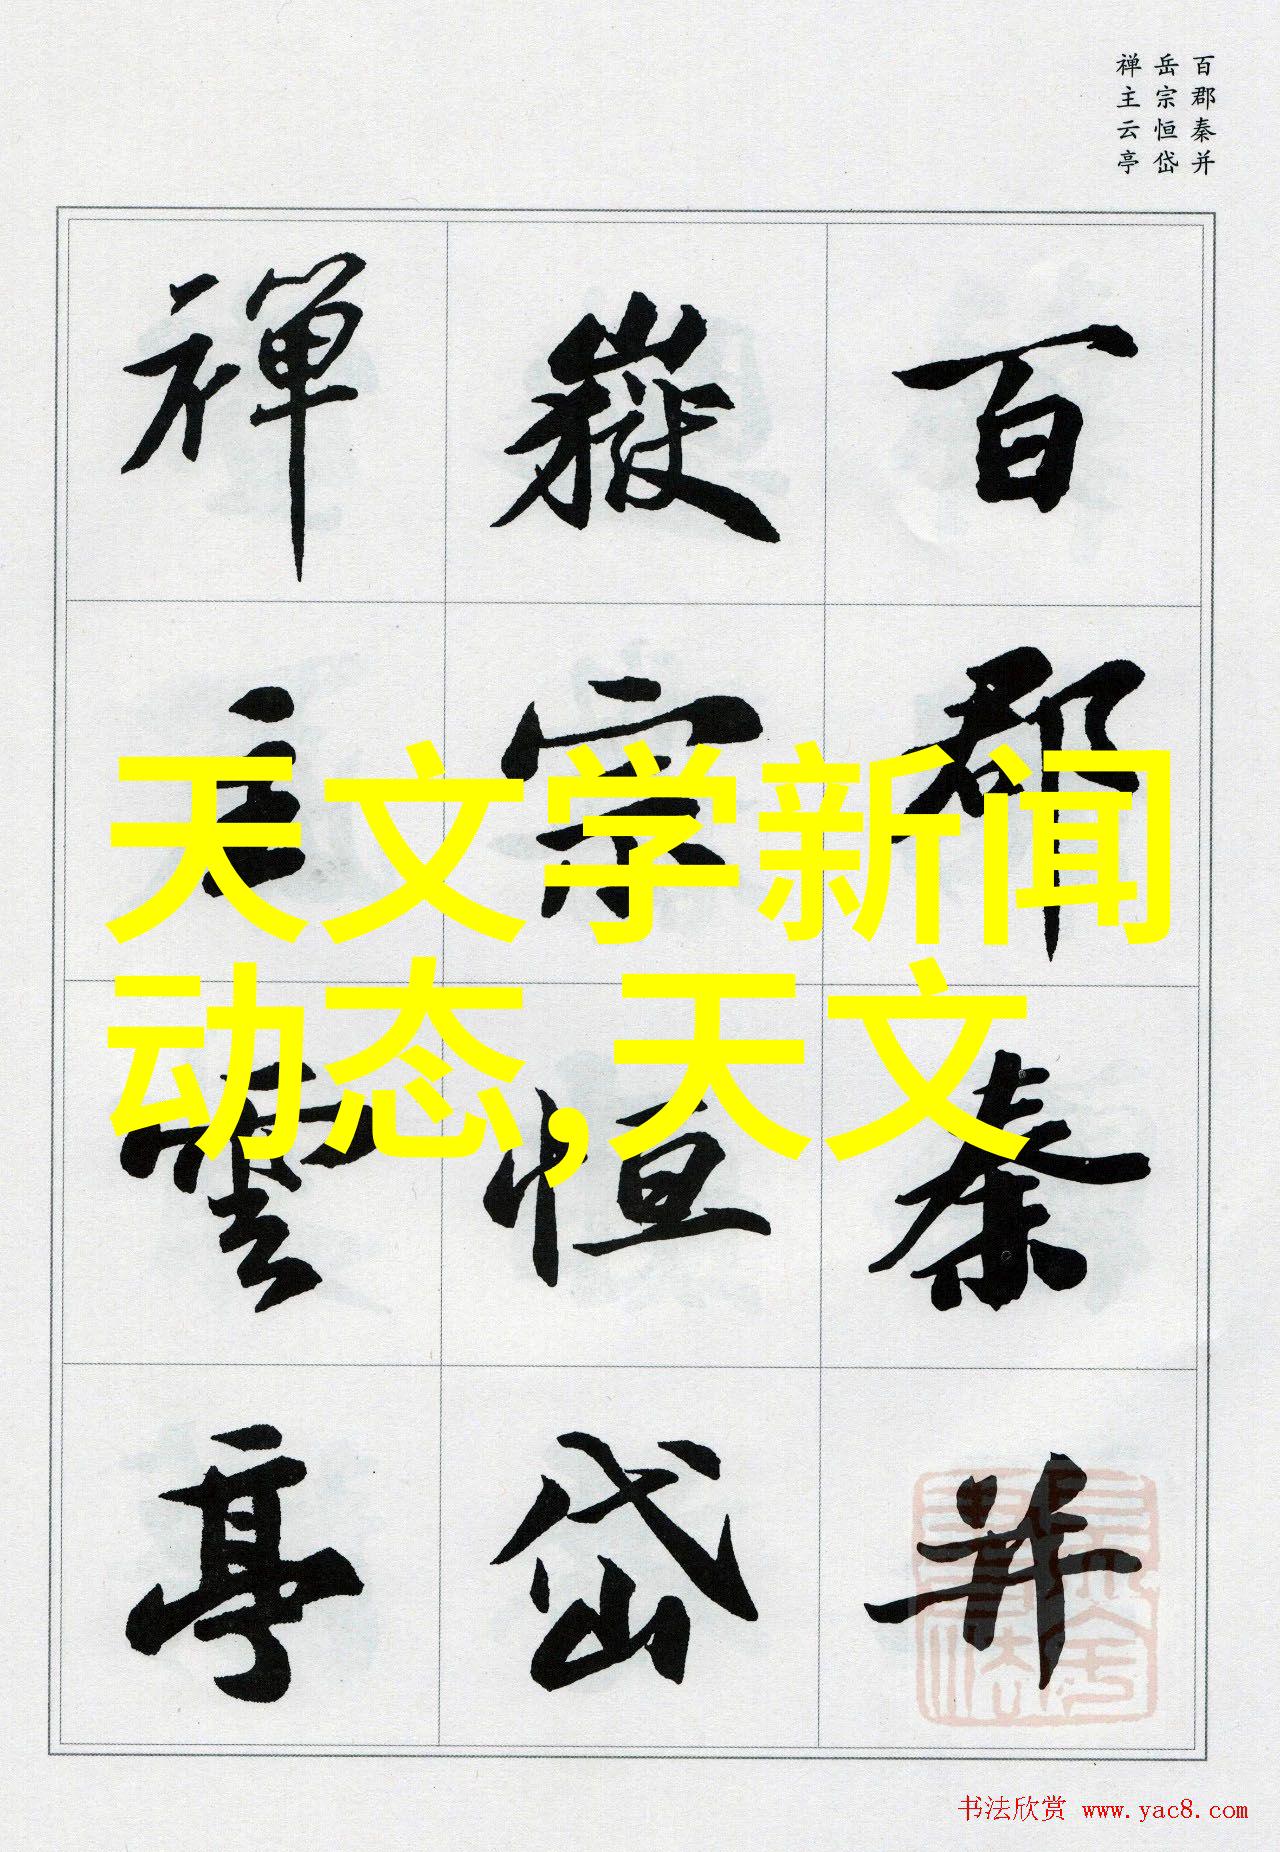 百郡秦并
岳宗恒岱
禅主云亭
百郡秦并
嶽宗恒岱
禪主雲亭
天文学新闻
动态,天文
书法欣赏 www.yac8.com